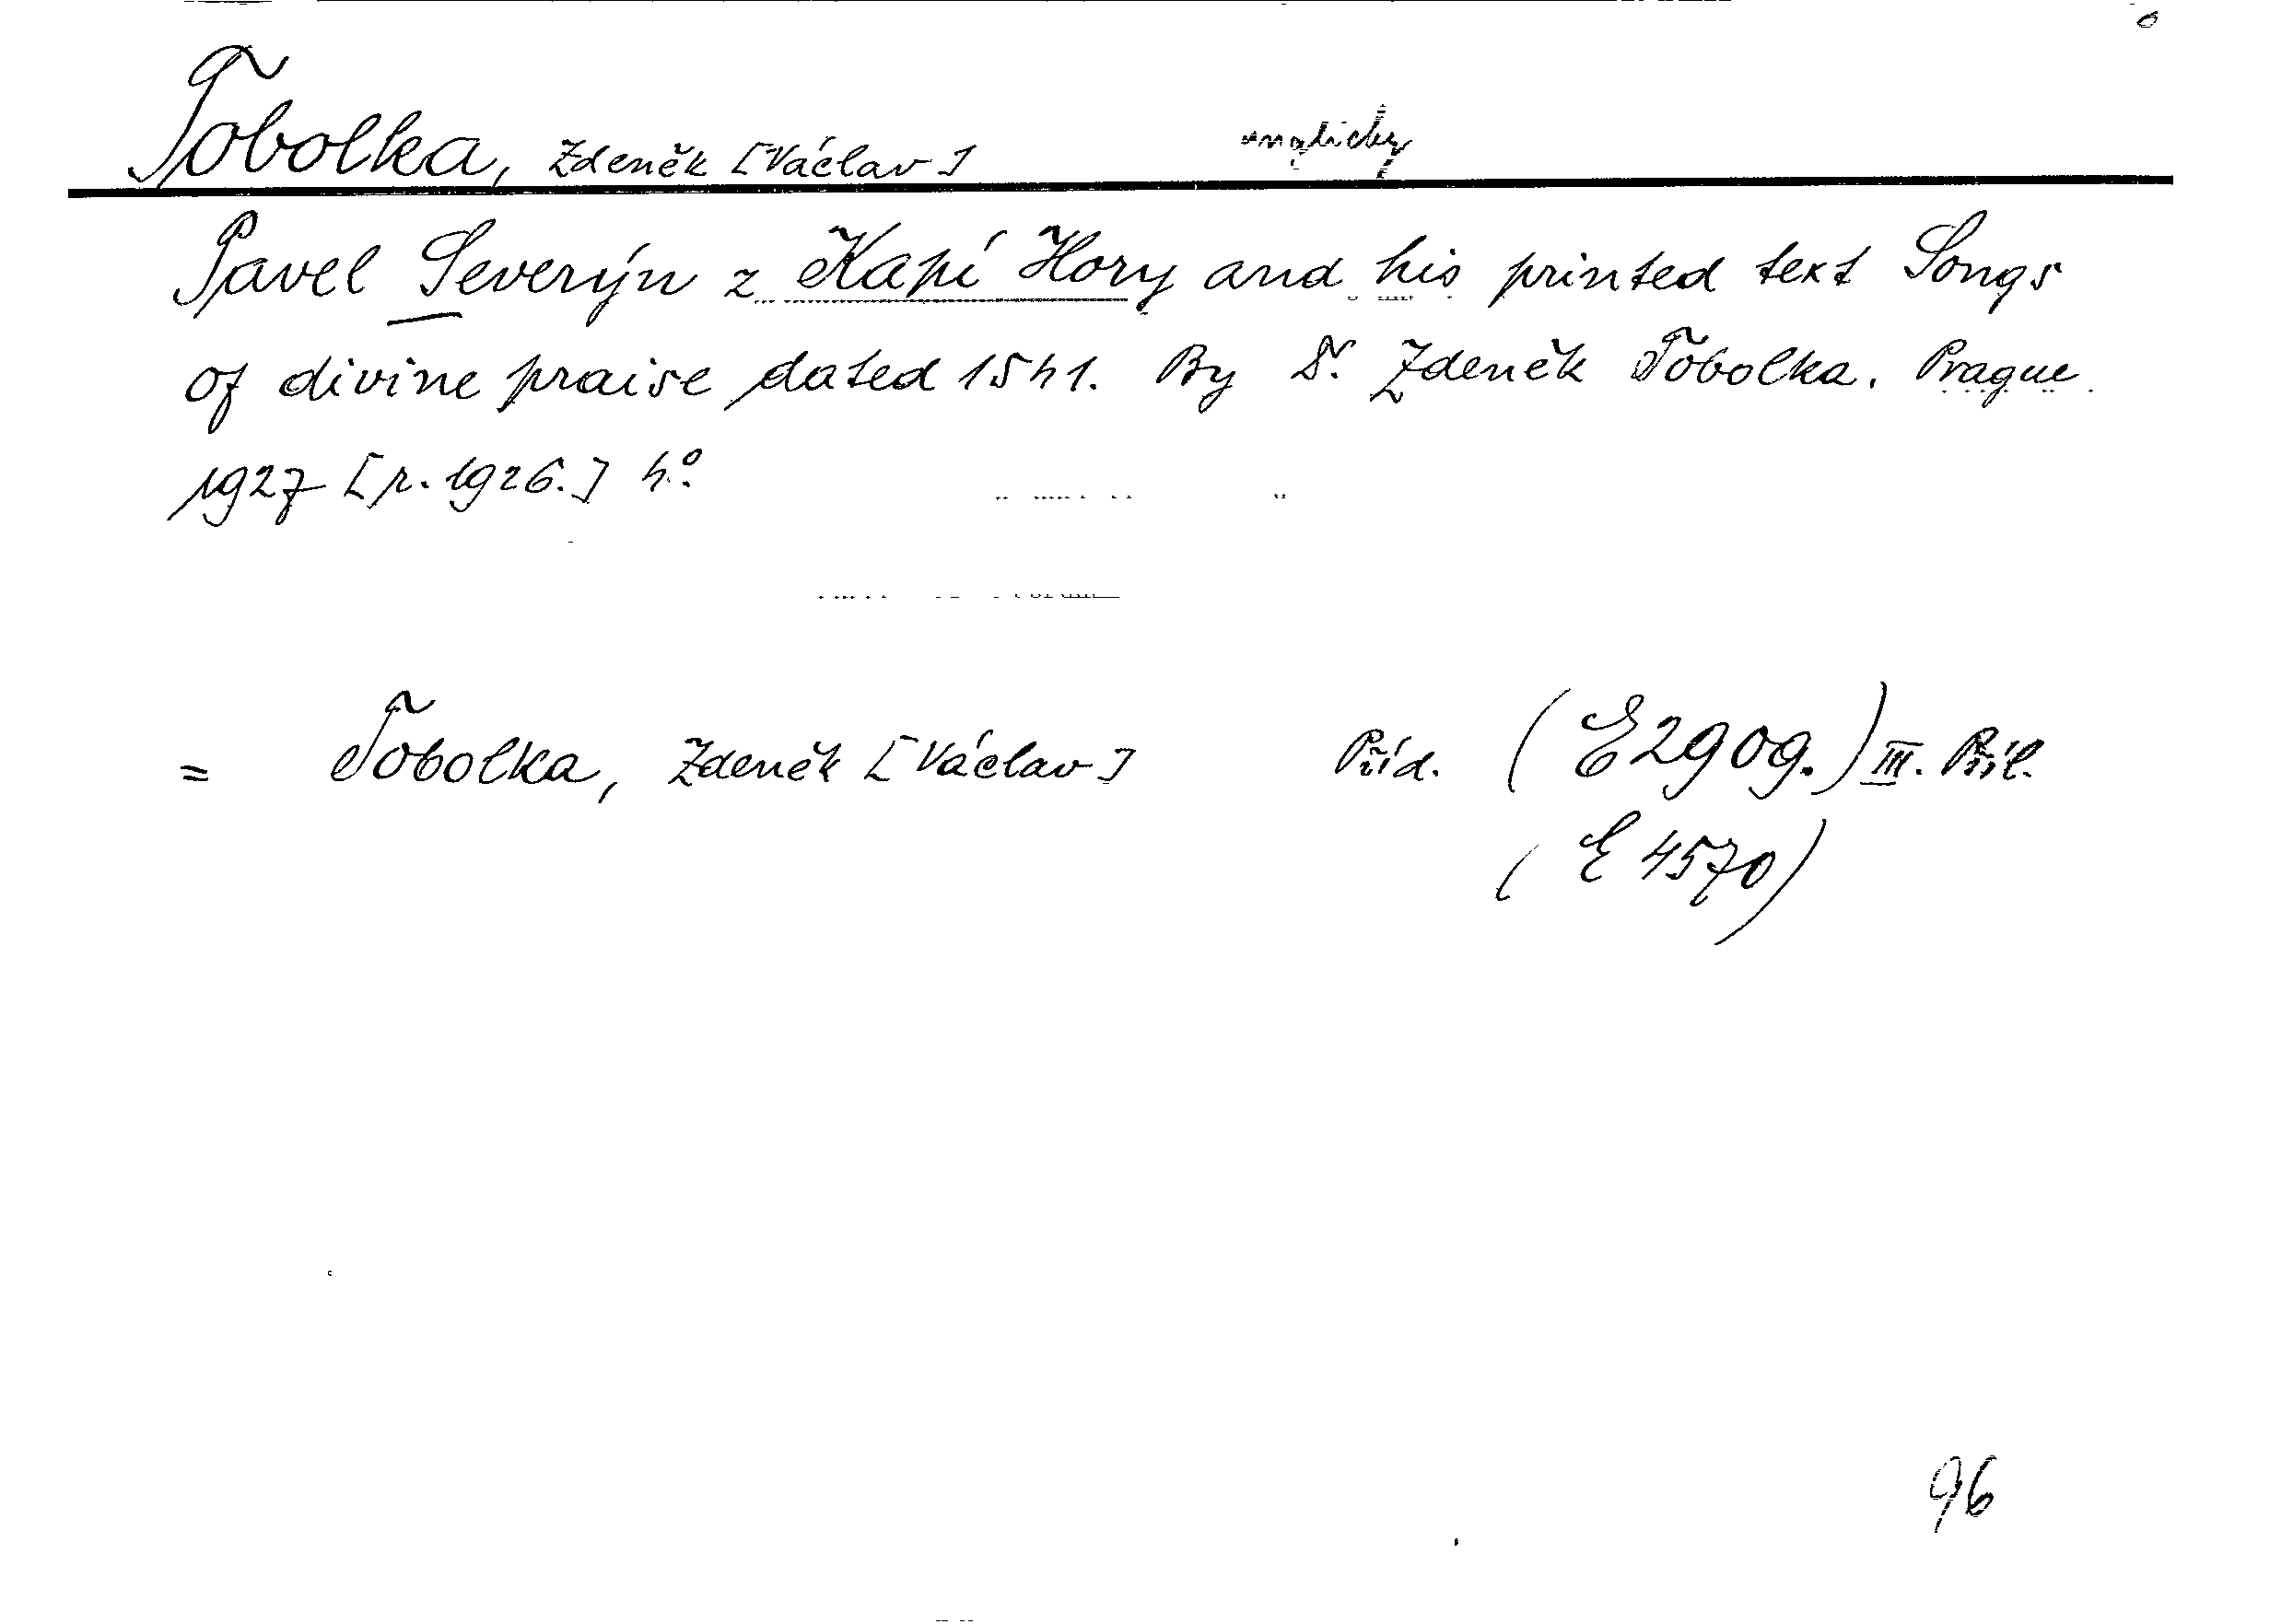 Tobolka, Zdeněk [Václav] anglicky
Pavel Severýn z Kapí Hory and his printed text Songs
of divine praise dated 1541. By Dr. Zdeněk Tobolka. Prague
1927 [r. 1926.] 4°.
= Tobolka, Zdeněk [Václav] Příd. (E 2909.) III. Příl.
(E 4570)
96